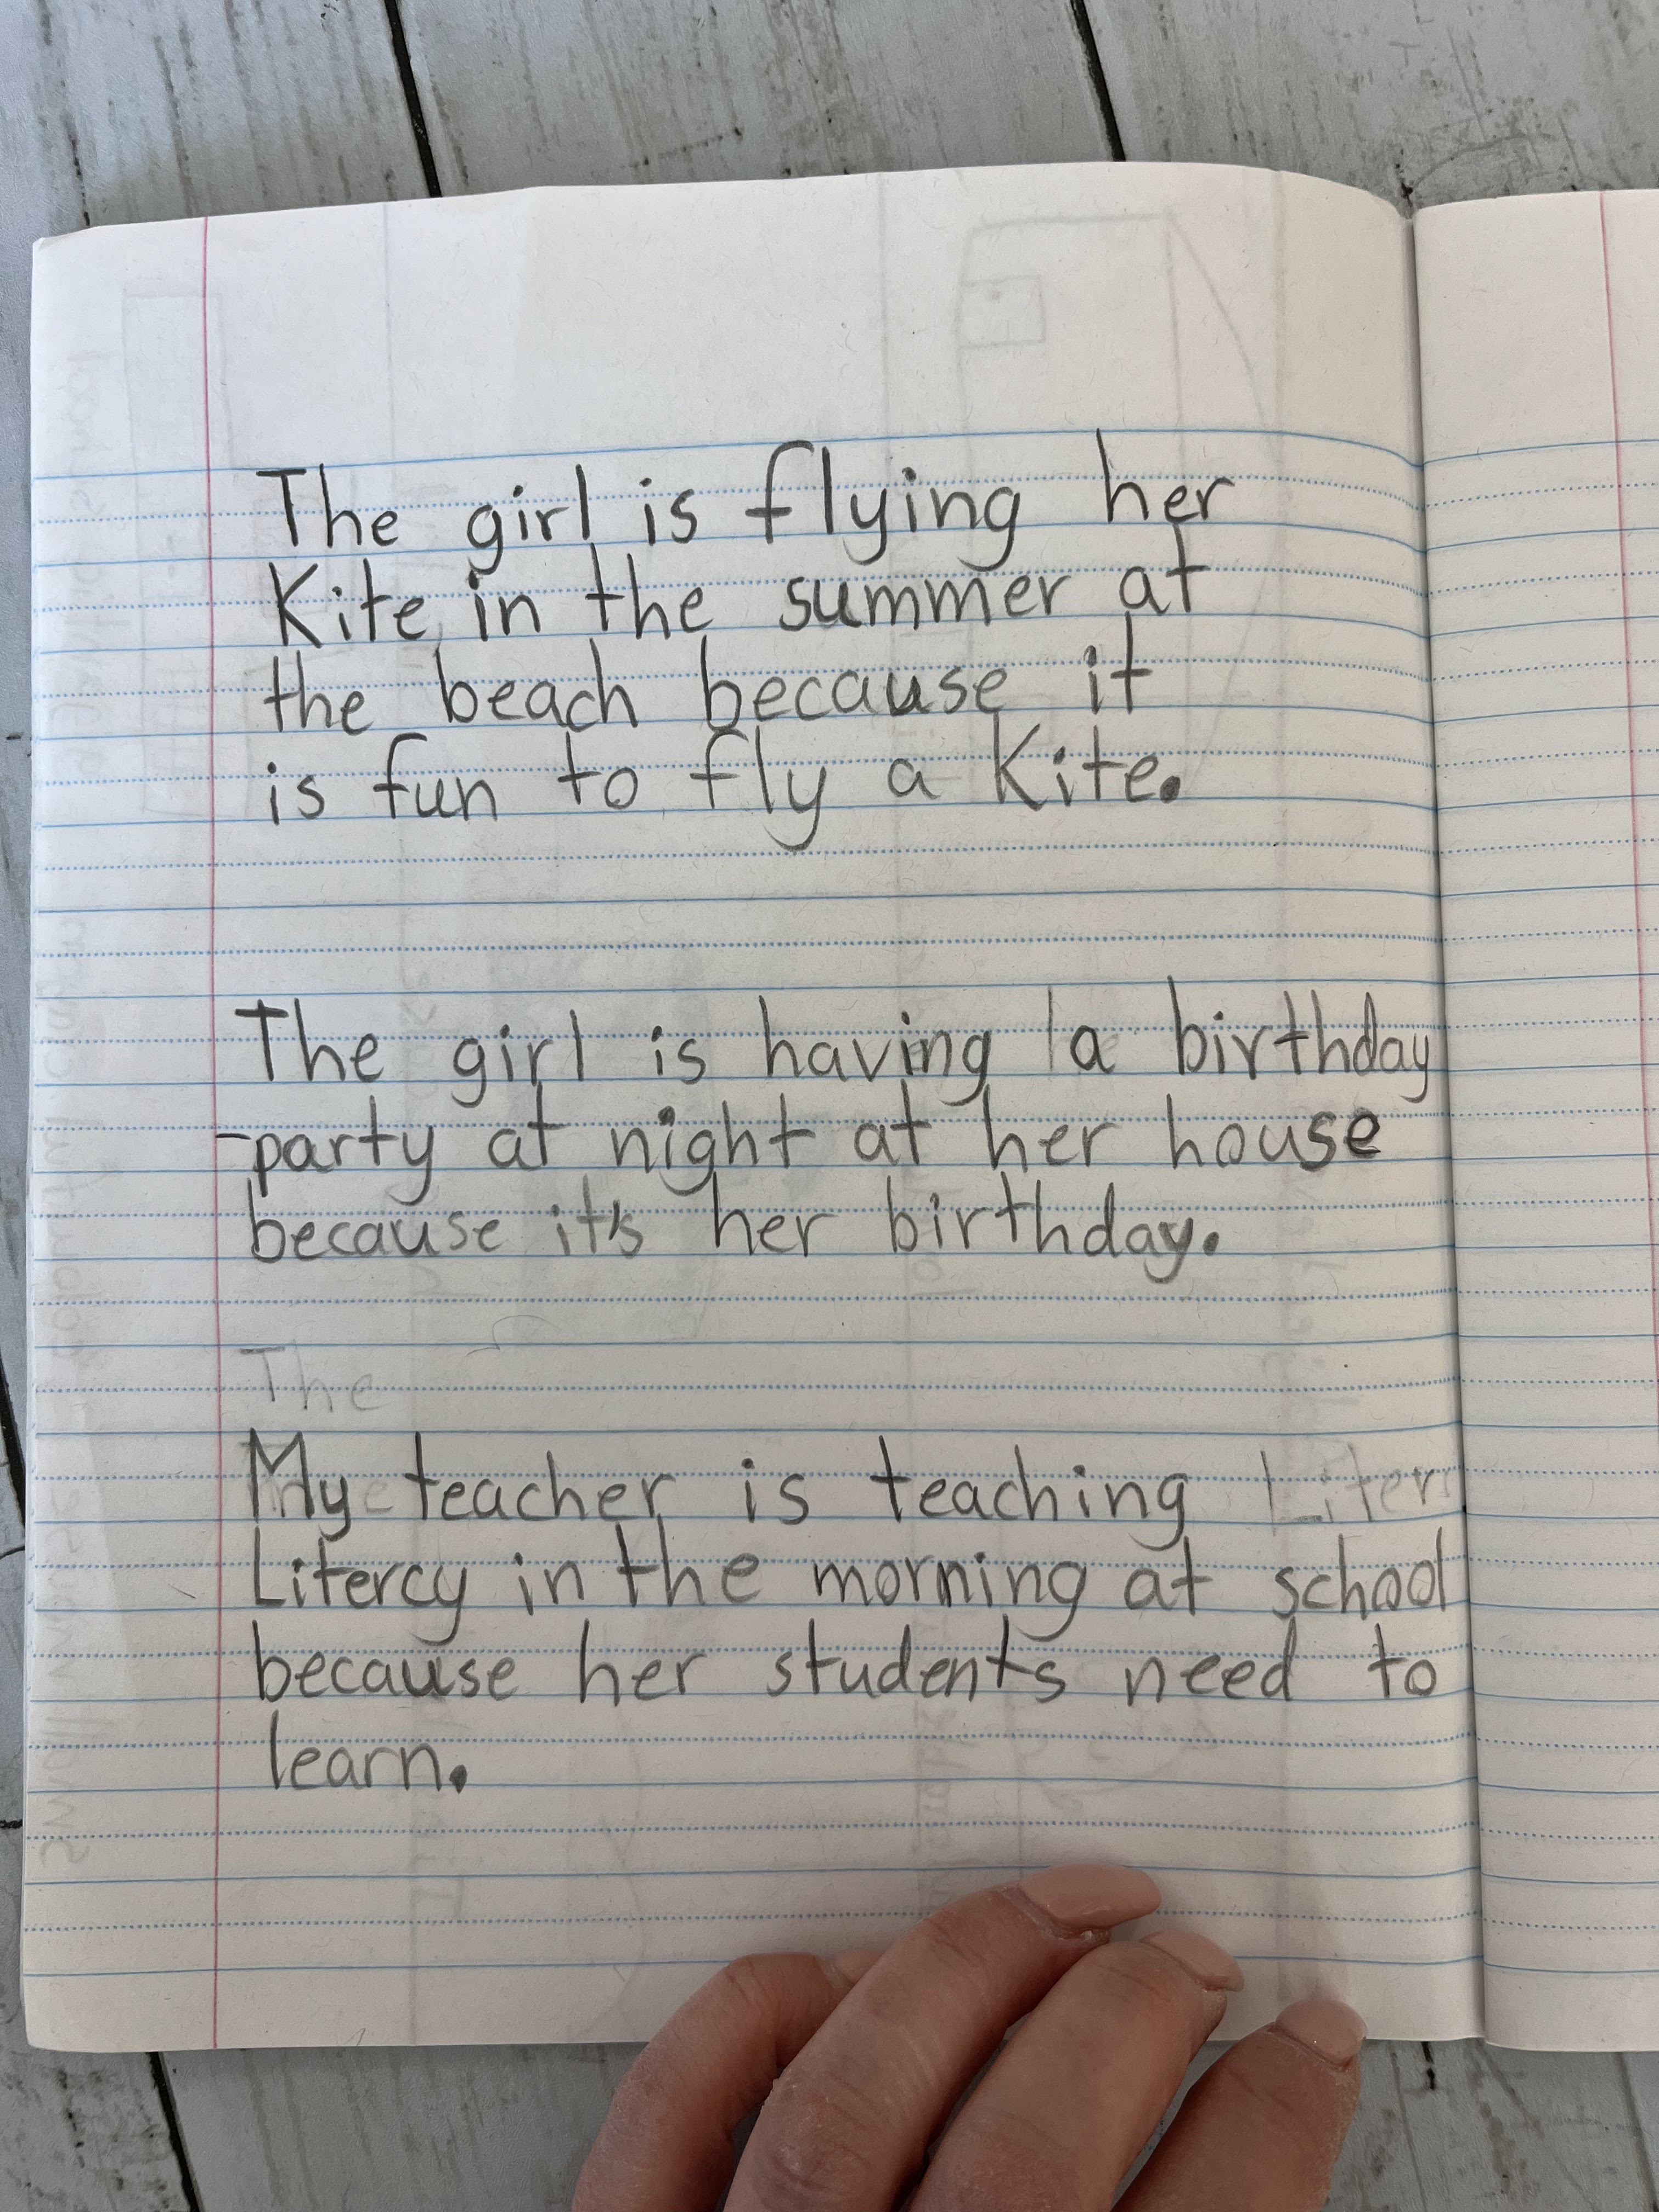 The girl is flying her
Kite in the summer at
the beach because it
is fun to fly a Kite.
The girl is having a birthday
party at night at her house
because it's her birthday.
The
My teacher is teaching Liter
Litercy in the morning at school
because her students need to
learn.